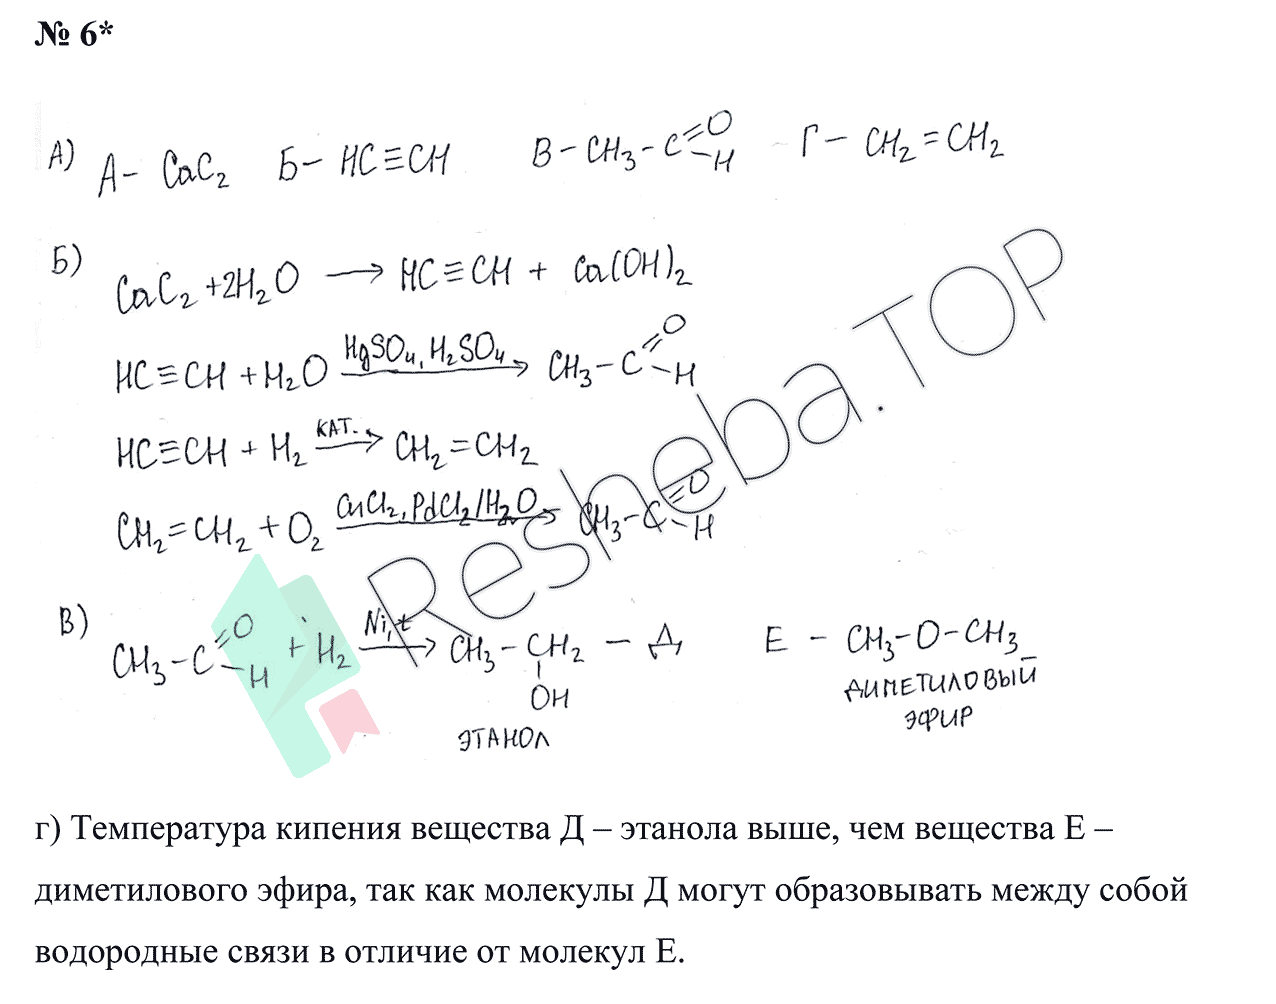 № 6*
А) А – CaC₂ Б – HC≡CH В – CH₃–C=O –H Г – CH₂=CH₂
Б) CaC₂ + 2H₂O → HC≡CH + Ca(OH)₂
HC≡CH + H₂O HgSO₄, H₂SO₄ → CH₃–C=O –H
HC≡CH + H₂ КАТ. → CH₂=CH₂
CH₂=CH₂ + O₂ CuCl₂, PdCl₂/H₂O → CH₃–C=O –H
В) CH₃–C=O –H + H₂ Ni, t → CH₃–CH₂ – Д Е – CH₃–O–CH₃
OH
ДИМЕТИЛОВЫЙ
ЭТАНОЛ ЭФИР
г) Температура кипения вещества Д – этанола выше, чем вещества Е –
диметилового эфира, так как молекулы Д могут образовывать между собой
водородные связи в отличие от молекул Е.
Resheba.TOP